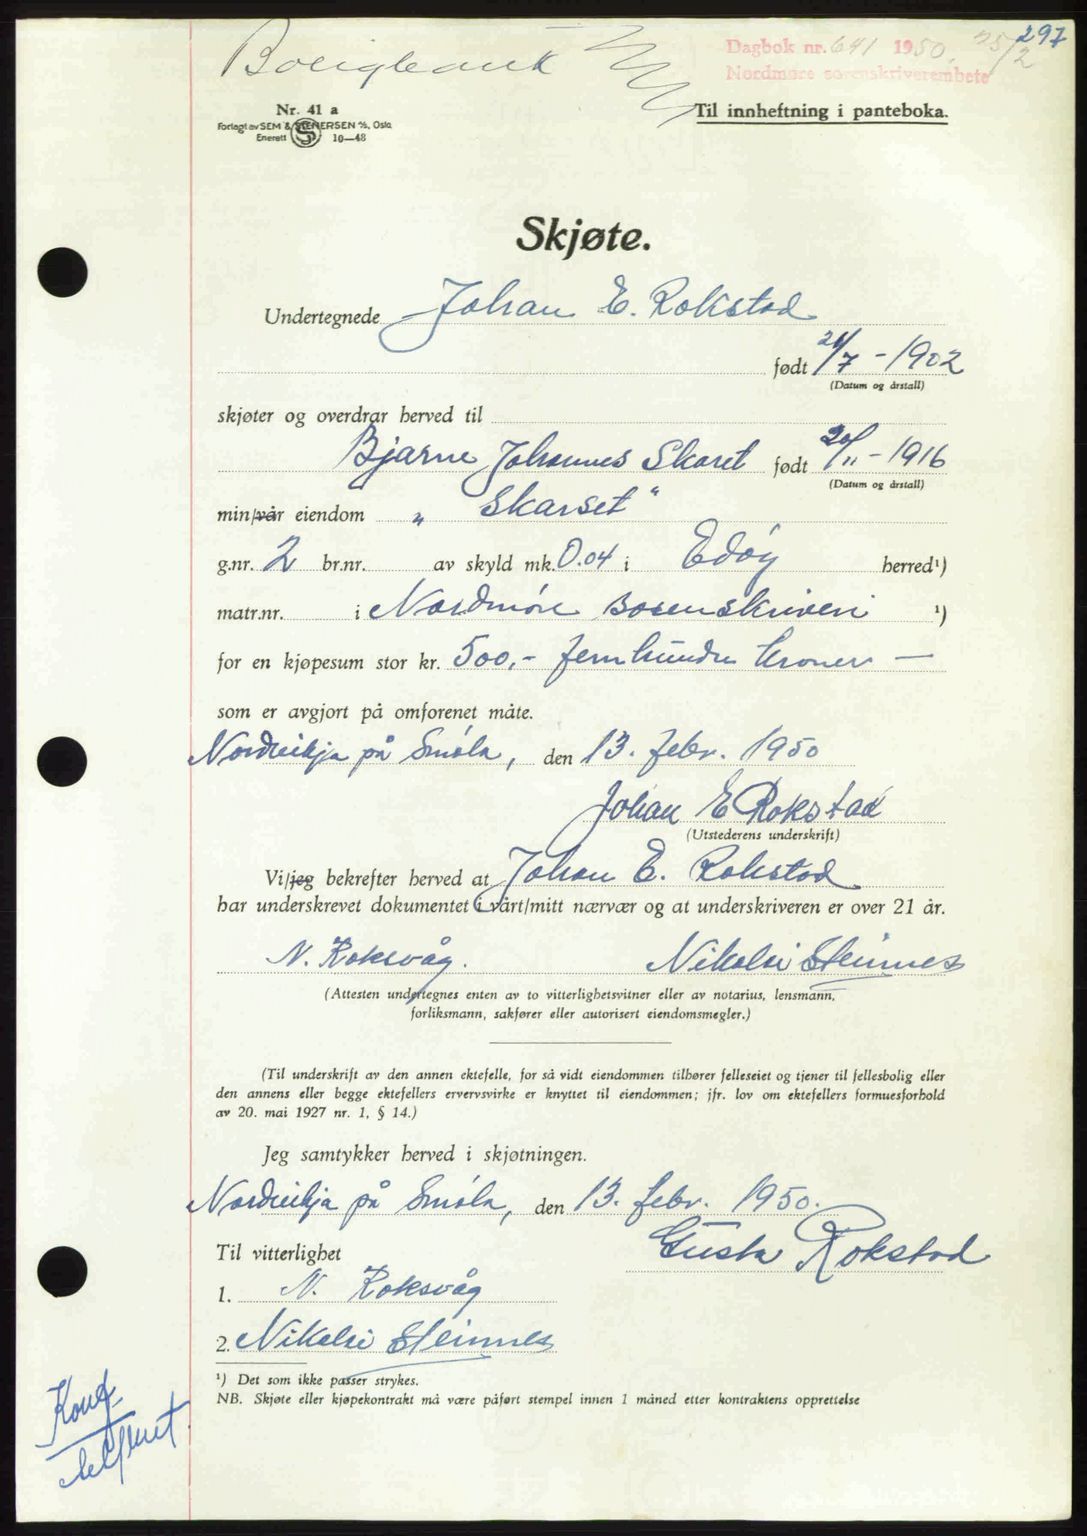 297
Boligbank
Dagbok nr. 641 1950. 25/2
Nordmøre sorenskriverembete
Nr. 41 a
Forlagt av SEM & STENERSEN A/S, Oslo
Enerett 10—48
Til innheftning i panteboka.
Skjøte.
Undertegnede Johan E. Rokstad
født 21/7 - 1902
(Datum og årstall)
skjøter og overdrar herved til
Bjarne Johannes Skaret født 20/11 - 1916
(Datum og årstall)
min/vår eiendom „ Skarset "
g.nr. 2 br.nr. av skyld mk. 0.04 i Edøy herred¹)
matr.nr. i Nordmøre sorenskriveri ¹)
for en kjøpesum stor kr. 500,- femhundre kroner —
som er avgjort på omforenet måte.
Nordvikja på Smøla, den 13. febr. 1950
Johan E Rokstad
(Utstederens underskrift)
Vi/jeg bekrefter herved at Johan E. Rokstad
har underskrevet dokumentet i vårt/mitt nærvær og at underskriveren er over 21 år.
N. Roksvåg. Nikolai Steinnes
(Attesten undertegnes enten av to vitterlighetsvitner eller av notarius, lensmann,
forliksmann, sakfører eller autorisert eiendomsmegler.)
(Til underskrift av den annen ektefelle, for så vidt eiendommen tilhører felleseiet og tjener til fellesbolig eller
den annens eller begge ektefellers ervervsvirke er knyttet til eiendommen; jfr. lov om ektefellers formuesforhold
av 20. mai 1927 nr. 1, § 14.)
Jeg samtykker herved i skjøtningen.
Nordvikja på Smøla, den 13. febr. 1950.
Gusta Rokstad
Til vitterlighet
1. N. Roksvåg
2. Nikolai Steinnes
¹) Det som ikke passer strykes.
NB. Skjøte eller kjøpekontrakt må være påført stempel innen 1 måned etter kontraktens opprettelse
Konf.